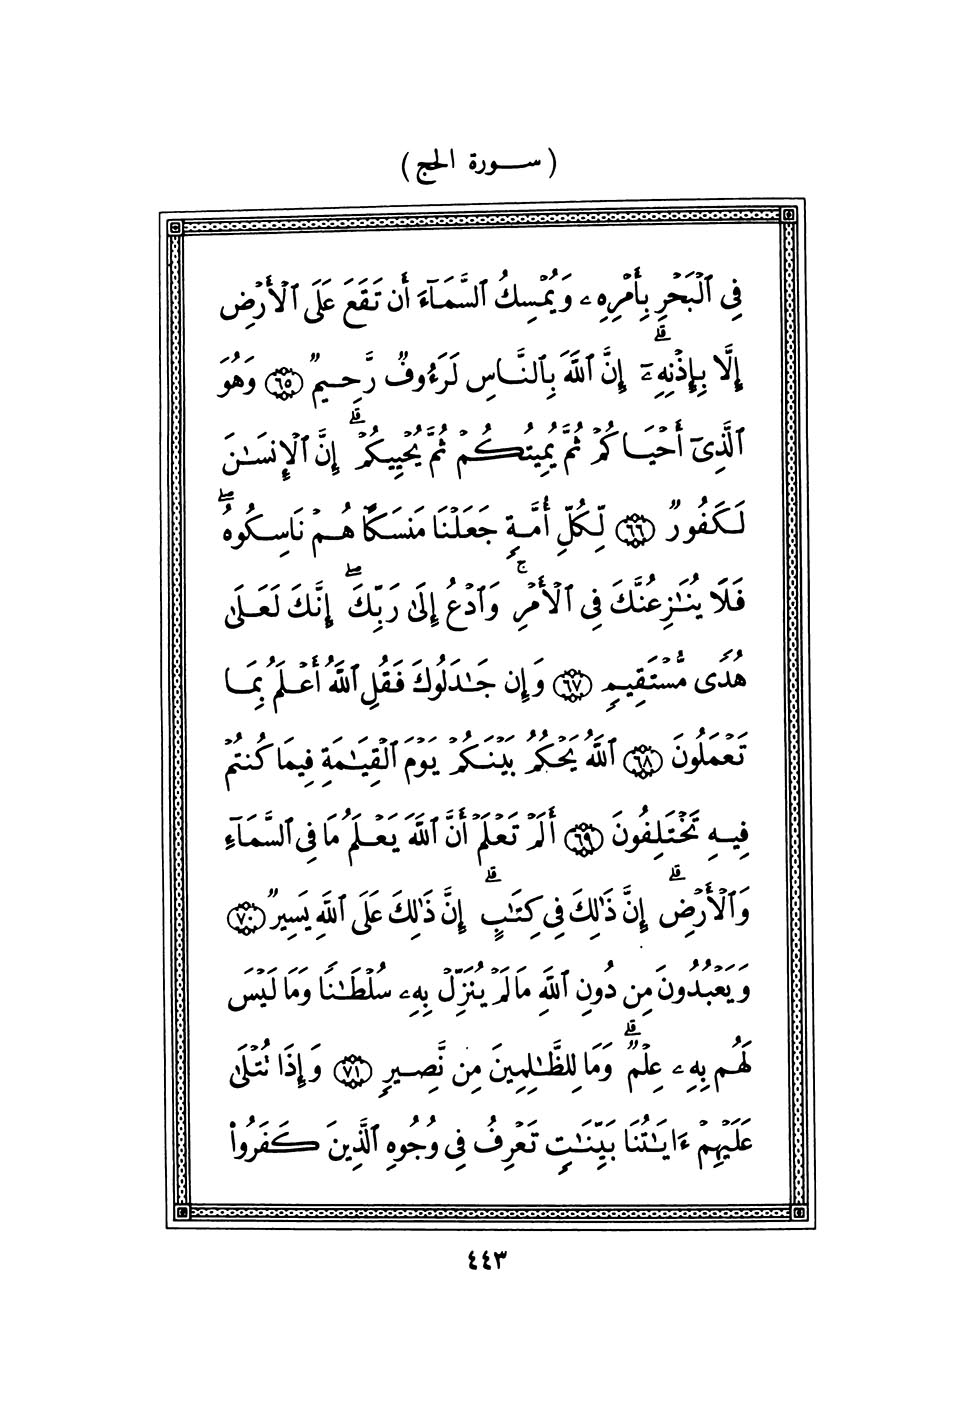 ( سورة الحج )
فِى ٱلْبَحْرِ بِأَمْرِهِۦ وَيُمْسِكُ ٱلسَّمَآءَ أَن تَقَعَ عَلَى ٱلْأَرْضِ
إِلَّا بِإِذْنِهِۦٓ ۗ إِنَّ ٱللَّهَ بِٱلنَّاسِ لَرَءُوفٌ رَّحِيمٌ ٦٥ وَهُوَ
ٱلَّذِىٓ أَحْيَاكُمْ ثُمَّ يُمِيتُكُمْ ثُمَّ يُحْيِيكُمْ ۗ إِنَّ ٱلْإِنسَٰنَ
لَكَفُورٌ ٦٦ لِّكُلِّ أُمَّةٍ جَعَلْنَا مَنسَكًا هُمْ نَاسِكُوهُ ۖ
فَلَا يُنَٰزِعُنَّكَ فِى ٱلْأَمْرِ ۚ وَٱدْعُ إِلَىٰ رَبِّكَ ۖ إِنَّكَ لَعَلَىٰ
هُدًى مُّسْتَقِيمٍ ٦٧ وَإِن جَٰدَلُوكَ فَقُلِ ٱللَّهُ أَعْلَمُ بِمَا
تَعْمَلُونَ ٦٨ ٱللَّهُ يَحْكُمُ بَيْنَكُمْ يَوْمَ ٱلْقِيَٰمَةِ فِيمَا كُنتُمْ
فِيهِ تَخْتَلِفُونَ ٦٩ أَلَمْ تَعْلَمْ أَنَّ ٱللَّهَ يَعْلَمُ مَا فِى ٱلسَّمَآءِ
وَٱلْأَرْضِ ۗ إِنَّ ذَٰلِكَ فِى كِتَٰبٍ ۗ إِنَّ ذَٰلِكَ عَلَى ٱللَّهِ يَسِيرٌ ٧٠
وَيَعْبُدُونَ مِن دُونِ ٱللَّهِ مَا لَمْ يُنَزِّلْ بِهِۦ سُلْطَٰنًا وَمَا لَيْسَ
لَهُم بِهِۦ عِلْمٌ ۗ وَمَا لِلظَّٰلِمِينَ مِن نَّصِيرٍ ٧١ وَإِذَا تُتْلَىٰ
عَلَيْهِمْ ءَايَٰتُنَا بَيِّنَٰتٍ تَعْرِفُ فِى وُجُوهِ ٱلَّذِينَ كَفَرُوا۟
٤٤٣